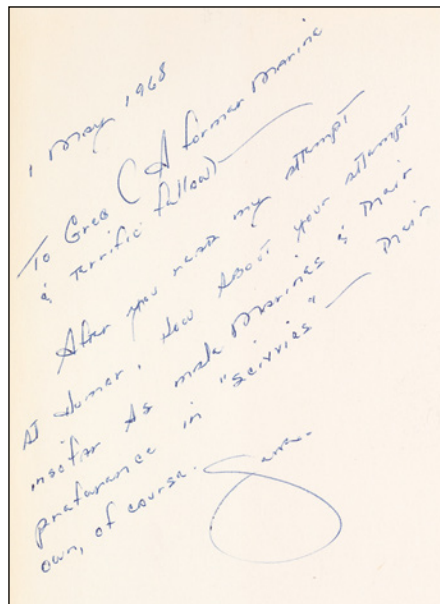 1 May 1968
To Greg (A former Marine
& terrific fellow) —
After you read my attempt
At Humor, How About your attempt
insofar As male Marines & their
preferance in "scivvies" — their
own, of course.